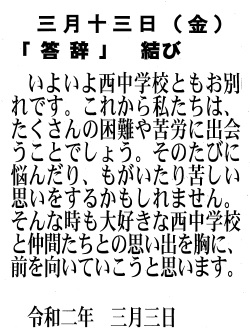 三月十三日（金）
「答辞」　結び
いよいよ西中学校ともお別
れです。これから私たちは、
たくさんの困難や苦労に出会
うことでしょう。そのたびに
悩んだり、もがいたり苦しい
思いをするかもしれません。
そんな時も大好きな西中学校
と仲間たちとの思い出を胸に、
前を向いていこうと思います。
令和二年　三月三日